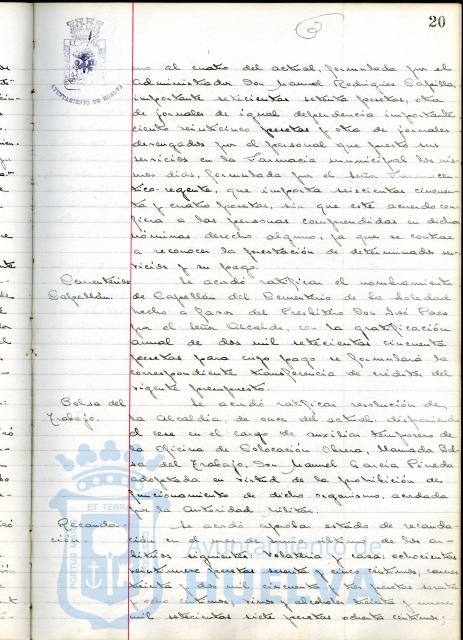 20
AYUNTAMIENTO DE HUELVA
no al cuatro del actual, formulada por el
Administrador Don Manuel Rodríguez Capilla,
importante setecientas setenta pesetas, otra
de jornales de igual dependencia importante
ciento veinticinco pesetas y otra de jornales
devengados por el personal que prestó sus
servicios en la Farmacia municipal los mis-
mos días, formulada por el Señor Farmaceu-
tico-regente, que importa seiscientas cincuen-
ta y cuatro pesetas, sin que este acuerdo con-
fiera a las personas comprendidas en dichas
nóminas derecho alguno, ya que se contrae
a reconocer la prestación de determinados ser-
vicios y su pago.
Cementerios
Capellán.
Se acordó ratificar el nombramiento
de Capellán del Cementerio de la Soledad
hecho a favor del Presbítero Don José
por el Señor Alcalde, con la gratificación
anual de dos mil setecientas cincuenta
pesetas para cuyo pago se formulará la
correspondiente transferencia de créditos del
vigente presupuesto.
Bolsa del
Trabajo.
Se acordó ratificar resolución de
la Alcaldía, de once del actual, disponiendo
el cese en el cargo de auxiliar temporero de
la Oficina de Colocación Obrera, llamada Bol-
sa del Trabajo, Don Manuel García Pineda
adoptada en virtud de la prohibición de
funcionamiento de dicho organismo, acordada
por la Autoridad Militar.
Recauda-
ción.
Se acordó aprobar estado de recauda-
ción en el de los ar-
bitrios siguientes: Volatería y caza, ochocientas
pesetas sesenta y cinco céntimos; carnes
treinta y dos mil cincuenta y pesetas sesenta
y ocho céntimos; vinos y alcoholes treinta y nueve
mil setecientas siete pesetas ochenta céntimos;
PORTUS
ET TERRAE
Ayuntamiento de
HUELVA